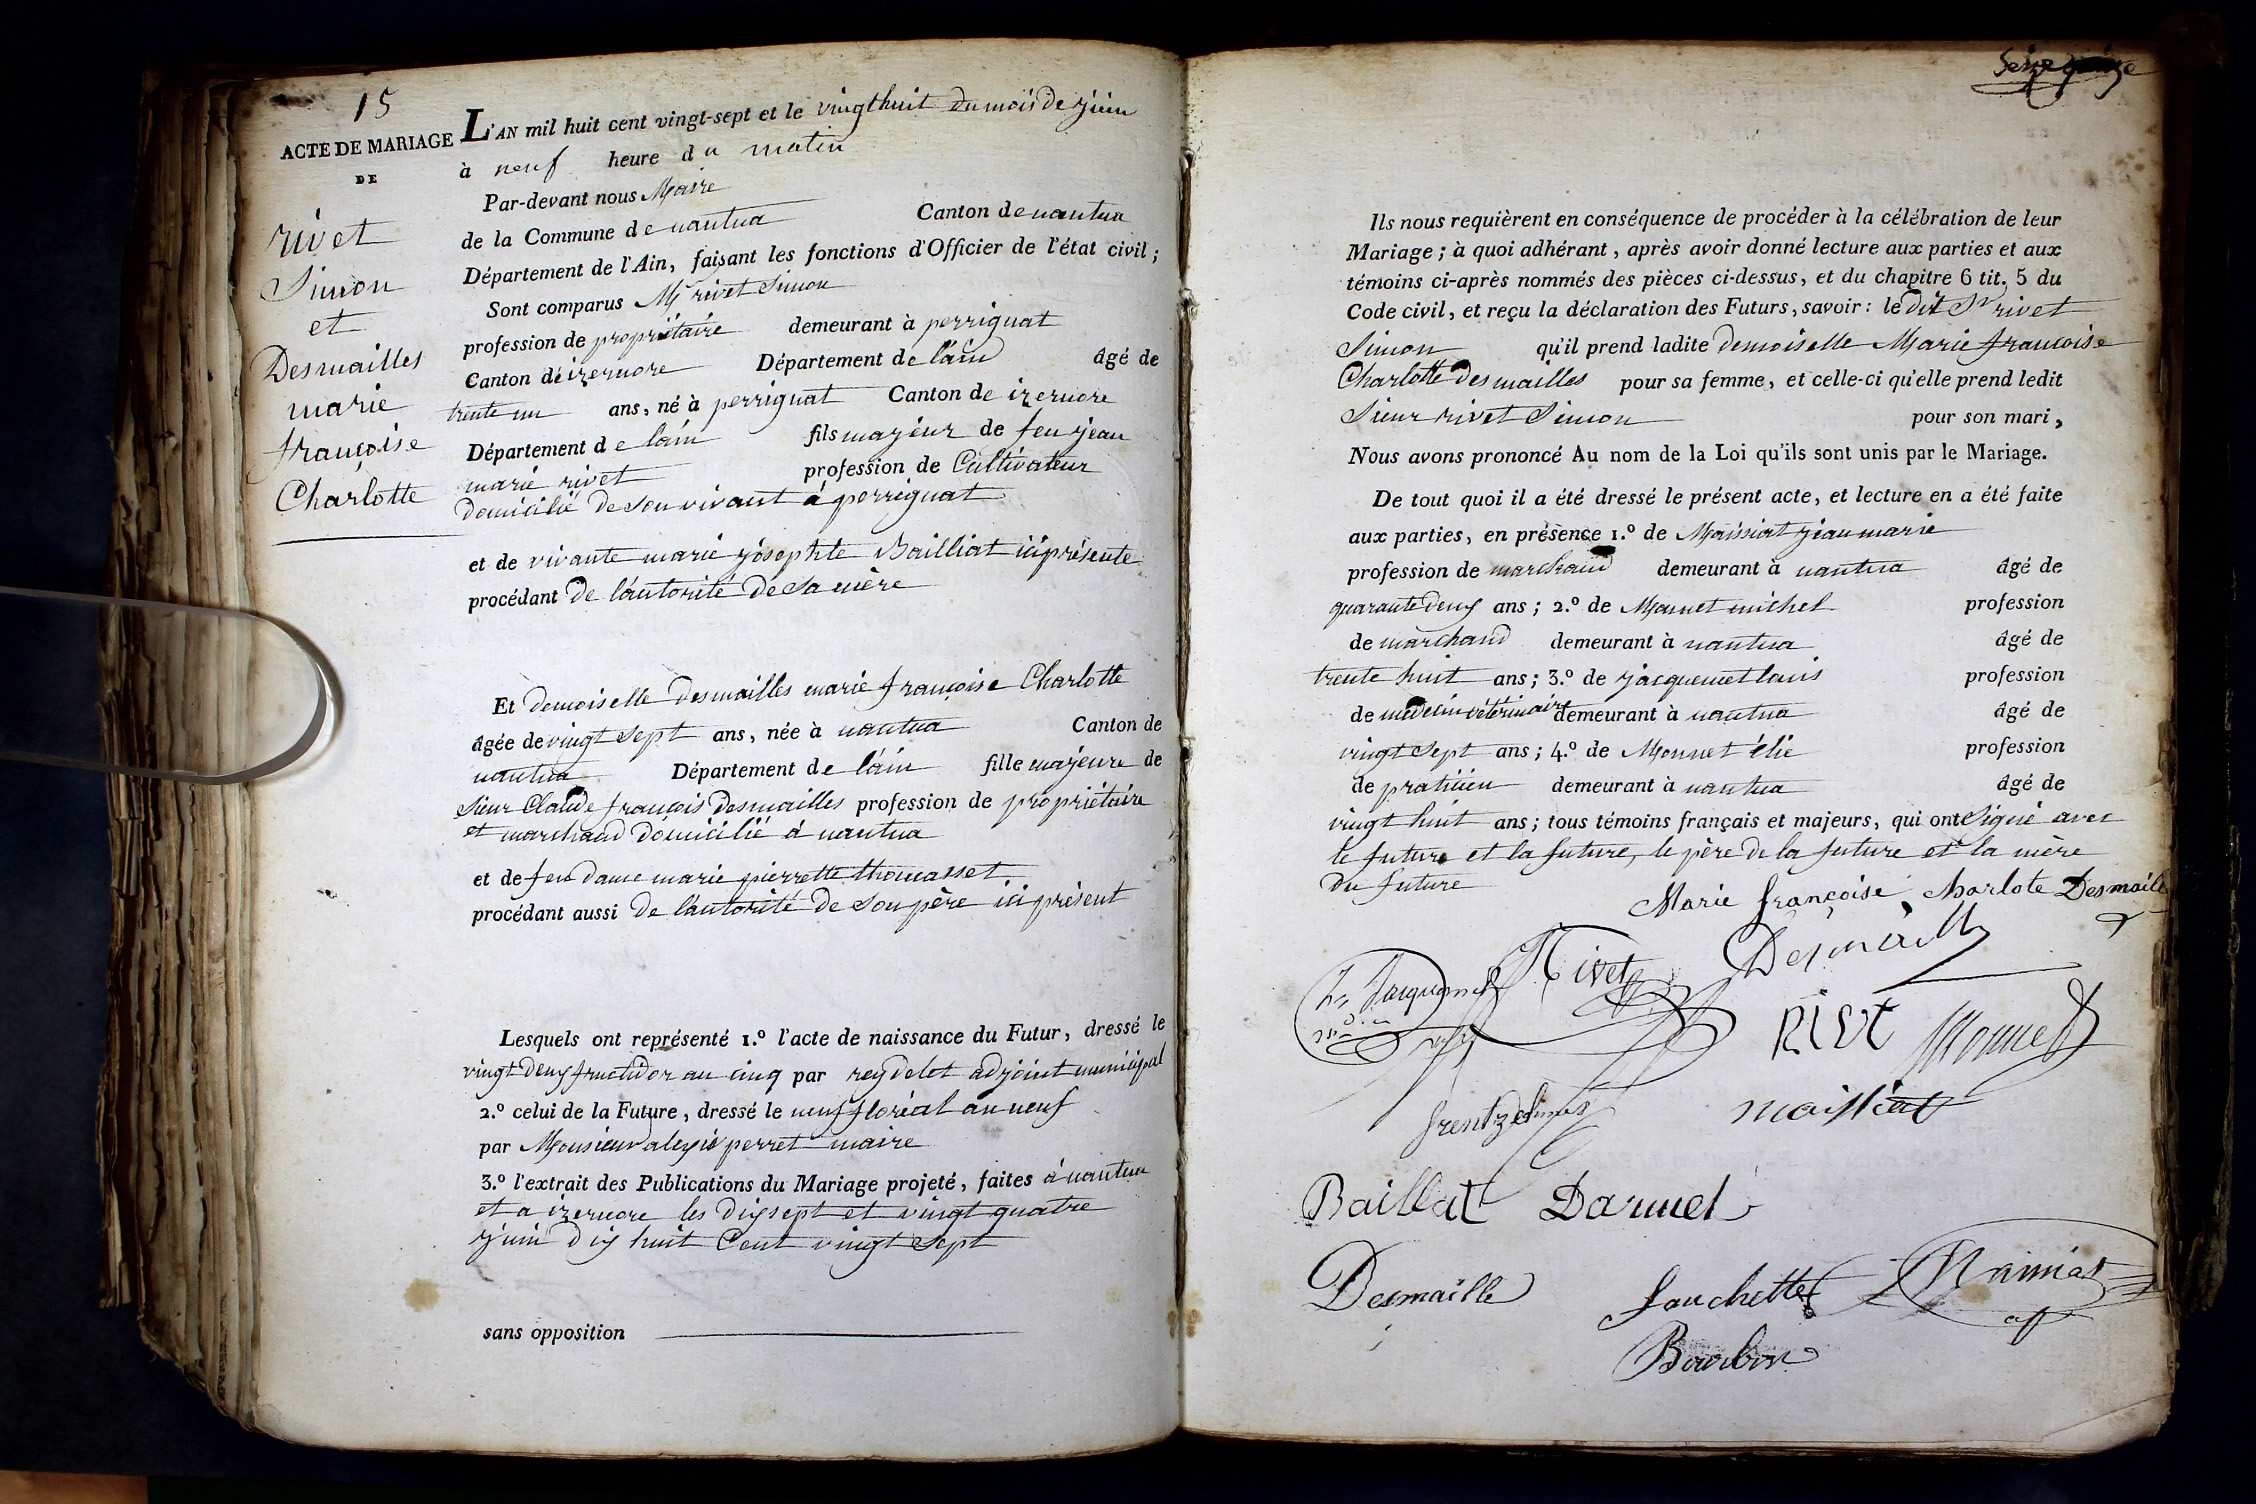 15
ACTE DE MARIAGE
DE
rivet
Simon
et
Desmailles
marie
françoise
Charlotte
L'AN mil huit cent vingt-sept et le vingt huit du mois de juin
à neuf heure du matin
Par-devant nous Maire
de la Commune de nantua Canton de nantua
Département de l'Ain, faisant les fonctions d'Officier de l'état civil;
Sont comparus Mr rivet Simon
profession de propriétaire demeurant à perrignat
Canton de izernore Département de l'ain âgé de
trente un ans, né à perrignat Canton de izernore
Département de lain fils majeur de feu jean
marie rivet profession de Cultivateur
domicilié de son vivant à perrignat
et de vivante marie josephte Bailliat ici présente
procédant de l'autorité de sa mère
Et demoiselle desmailles marie françoise Charlotte
âgée de vingt sept ans, née à nantua Canton de
nantua Département de l'ain fille majeure de
Sieur Claude françois desmailles profession de propriétaire
et marchand domicilié à nantua
et de feu dame marie pierrette thomasset
procédant aussi de l'autorité de son père ici présent
Lesquels ont représenté 1.º l'acte de naissance du Futur, dressé le
vingt deux fructidor an cinq par reydelet adjoint municipal
2.º celui de la Future, dressé le neuf floréal an neuf
par Monsieur alexis perret maire
3.º l'extrait des Publications du Mariage projeté, faites à nantua
et a izernore les dix sept et vingt quatre
juin dix huit Cent vingt Sept
sans opposition
Seize
Ils nous requièrent en conséquence de procéder à la célébration de leur
Mariage; à quoi adhérant, après avoir donné lecture aux parties et aux
témoins ci-après nommés des pièces ci-dessus, et du chapitre 6 tit. 5 du
Code civil, et reçu la déclaration des Futurs, savoir: le dit Sr rivet
Simon qu'il prend ladite demoiselle Marie françoise
Charlotte desmailles pour sa femme, et celle-ci qu'elle prend ledit
Sieur rivet Simon pour son mari,
Nous avons prononcé Au nom de la Loi qu'ils sont unis par le Mariage.
De tout quoi il a été dressé le présent acte, et lecture en a été faite
aux parties, en présence 1.º de Maissiat jean marie
profession de marchand demeurant à nantua âgé de
quarante deux ans; 2.º de Monnet michel profession
de marchand demeurant à nantua âgé de
trente huit ans; 3.º de jacquemet louis profession
de médecin vétérinaire demeurant à nantua âgé de
vingt sept ans; 4.º de Monnet élie profession
de praticien demeurant à nantua âgé de
vingt huit ans; tous témoins français et majeurs, qui ont Signé avec
le future et la future, le père de la future et la mère
du future
Marie françoise Charlote Desmaille
Rivet Desmaille
Jacquemet
Rivt Monnet
maissiat
Baillat Darmet
Desmaille Fauchette
Bourbon